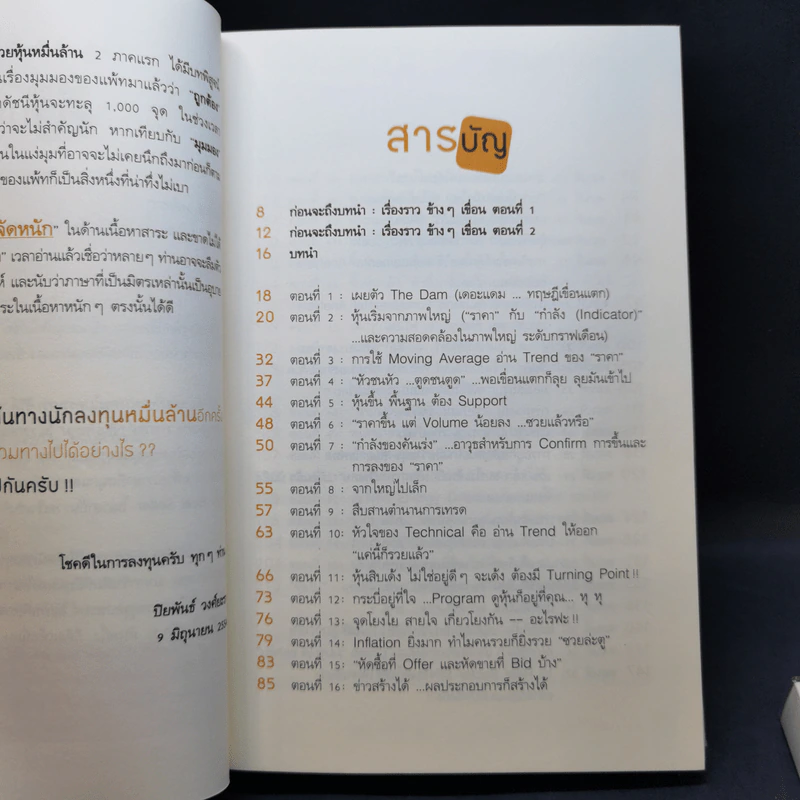 วยหุ้นหมื่นล้าน 2 ภาคแรก ได้มีบทพิสูจน์
นเรื่องมุมมองของแพ้ทมาแล้วว่า "ถูกต้อง
าดัชนีหุ้นจะทะลุ 1,000 จุด ในช่วงเวลา
ว่าจะไม่สำคัญนัก หากเทียบกับ "มุมมอง
นในแง่มุมที่อาจจะไม่เคยนึกถึงมาก่อนก็ตาม
ของแพ้ทก็เป็นสิ่งหนึ่งที่น่าทึ่งไม่เบา
จัดหนัก" ในด้านเนื้อหาสาระ และขาดไม่ได้
" เวลาอ่านแล้วเชื่อว่าหลายๆ ท่านอาจจะลืมตัว
ห์ และนับว่าภาษาที่เป็นมิตรเหล่านั้นเป็น
ระในเนื้อหาหนักๆ ตรงนั้นได้ดี
ส้นทางนักลงทุนหมื่นล้านอีกครั้ง
วมทางไปได้อย่างไร ??
ปกันครับ !!
โชคดีในการลงทุนครับ ทุกๆ ท่าน
ปิยพันธ์ วงศ์ยะรา
9 มิถุนายน 255
สารบัญ
8 ก่อนจะถึงบทนำ : เรื่องราว ข้างๆ เขื่อน ตอนที่ 1
12 ก่อนจะถึงบทนำ : เรื่องราว ข้างๆ เขื่อน ตอนที่ 2
16 บทนำ
18 ตอนที่ 1 : เผยตัว The Dam (เดอะแดม ... ทฤษฎีเขื่อนแตก)
20 ตอนที่ 2 : หุ้นเริ่มจากภาพใหญ่ ("ราคา" กับ "กำลัง (Indicator)"
...และความสอดคล้องในภาพใหญ่ ระดับกราฟเดือน)
32 ตอนที่ 3 : การใช้ Moving Average อ่าน Trend ของ "ราคา"
37 ตอนที่ 4 : "หัวชนหัว ...ตูดชนตูด" ...พอเขื่อนแตกก็ลุย ลุยมันเข้าไป
44 ตอนที่ 5 : หุ้นขึ้น พื้นฐาน ต้อง Support
48 ตอนที่ 6 : "ราคาขึ้น แต่ Volume น้อยลง ...ซวยแล้วหรือ"
50 ตอนที่ 7 : "กำลังของคันเร่ง" ...อาวุธสำหรับการ Confirm การขึ้นและ
การลงของ "ราคา"
55 ตอนที่ 8 : จากใหญ่ไปเล็ก
57 ตอนที่ 9 : สืบสานตำนานการเทรด
63 ตอนที่ 10: หัวใจของ Technical คือ อ่าน Trend ให้ออก
"แค่นี้ก็รวยแล้ว"
66 ตอนที่ 11: หุ้นสิบเด้ง ไม่ใช่อยู่ดีๆ จะเด้ง ต้องมี Turning Point!!
73 ตอนที่ 12: กระบี่อยู่ที่ใจ ...Program ดูหุ้นก็อยู่ที่คุณ... ทุ ทุ
76 ตอนที่ 13: จุดโยงใย สายใจ เกี่ยวโยงกัน -- อะไรฟะ !!
79 ตอนที่ 14: Inflation ยิ่งมาก ทำไมคนรวยก็ยิ่งรวย "ซวยล่ะตู"
83 ตอนที่ 15: "หัดซื้อที่ Offer และหัดขายที่ Bid บ้าง"
85 ตอนที่ 16: ข่าวสร้างได้ ...ผลประกอบการก็สร้างได้